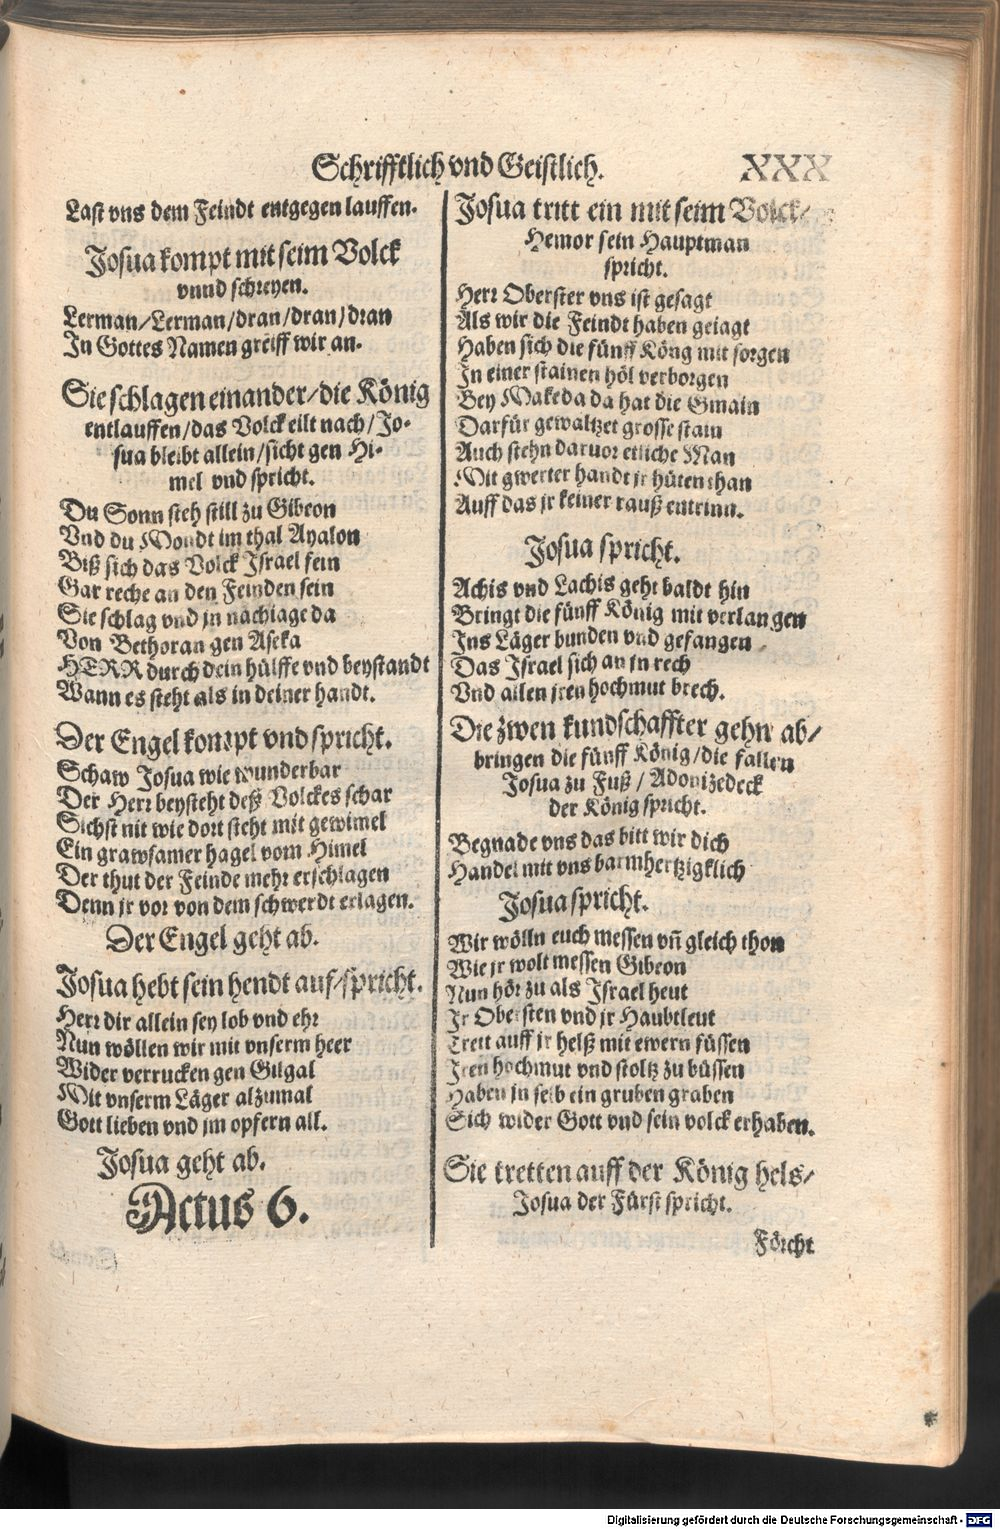 Schrifftlich vnd Geistlich. XXX
Last vns dem Feindt entgegen lauffen.
Josua kompt mit seim Volck
vnnd schreyen.
Lerman/Lerman/dran/dran/dran
In Gottes Namen greiff wir an.
Sie schlagen einander/die König
entlauffen/das Volck eilt nach/Jo-
sua bleibt allein/sicht gen Hi-
mel vnd spricht.
Du Sonn steh still zu Gibeon
Vnd du Mondt im thal Ayalon
Biß sich das Volck Israel fein
Gar reche an den Feinden sein
Sie schlag vnd jn nachiage da
Von Bethoran gen Aseka
HERR durch dein hülffe vnd beystandt
Wann es steht als in deiner handt.
Der Engel kompt vnd spricht.
Schaw Josua wie wunderbar
Der Herr beysteht deß Volckes schar
Sichst nit wie dort steht mit gewimel
Ein grawsamer hagel vom Himel
Der thut der Feinde mehr erschlagen
Denn jr vor von dem schwerdt erlagen.
Der Engel geht ab.
Josua hebt sein hendt auf/spricht.
Herr dir allein sey lob vnd ehr
Nun wöllen wir mit vnserm heer
Wider verrucken gen Gilgal
Mit vnserm Läger alzumal
Gott lieben vnd jm opfern all.
Josua geht ab.
Actus 6.
Josua tritt ein mit seim Volck/
Hemor sein Hauptman
spricht.
Herr Oberster vns ist gesagt
Als wir die Feindt haben geiagt
Haben sich die fünff Köng mit sorgen
In einer stainen höl verborgen
Bey Makeda da hat die Gmain
Darfür gewaltzet grosse stain
Auch stehn daruor etliche Man
Mit gwerter handt jr hüten than
Auff das jr keiner rauß entrinn.
Josua spricht.
Achis vnd Lachis geht baldt hin
Bringt die fünff König mit verlangen
Ins Läger bunden vnd gefangen
Das Israel sich an jn rech
Vnd allen jren hochmut brech.
Die zwen kundschaffter gehn ab/
bringen die fünff König/die fallen
Josua zu Fuß/Adonizedeck
der König spricht.
Begnade vns das bitt wir dich
Handel mit vns barmhertzigklich
Josua spricht.
Wir wölln euch messen vñ gleich thon
Wie jr wolt messen Gibeon
Nun hör zu als Israel heut
Jr Obersten vnd jr Haubtleut
Trett auff jr helß mit ewern füssen
Jren hochmut vnd stoltz zu büssen
Haben jn selb ein gruben graben
Sich wider Gott vnd sein volck erhaben.
Sie tretten auff der König hels/
Josua der Fürst spricht.
Förcht
Digitalisierung gefördert durch die Deutsche Forschungsgemeinschaft - DFG